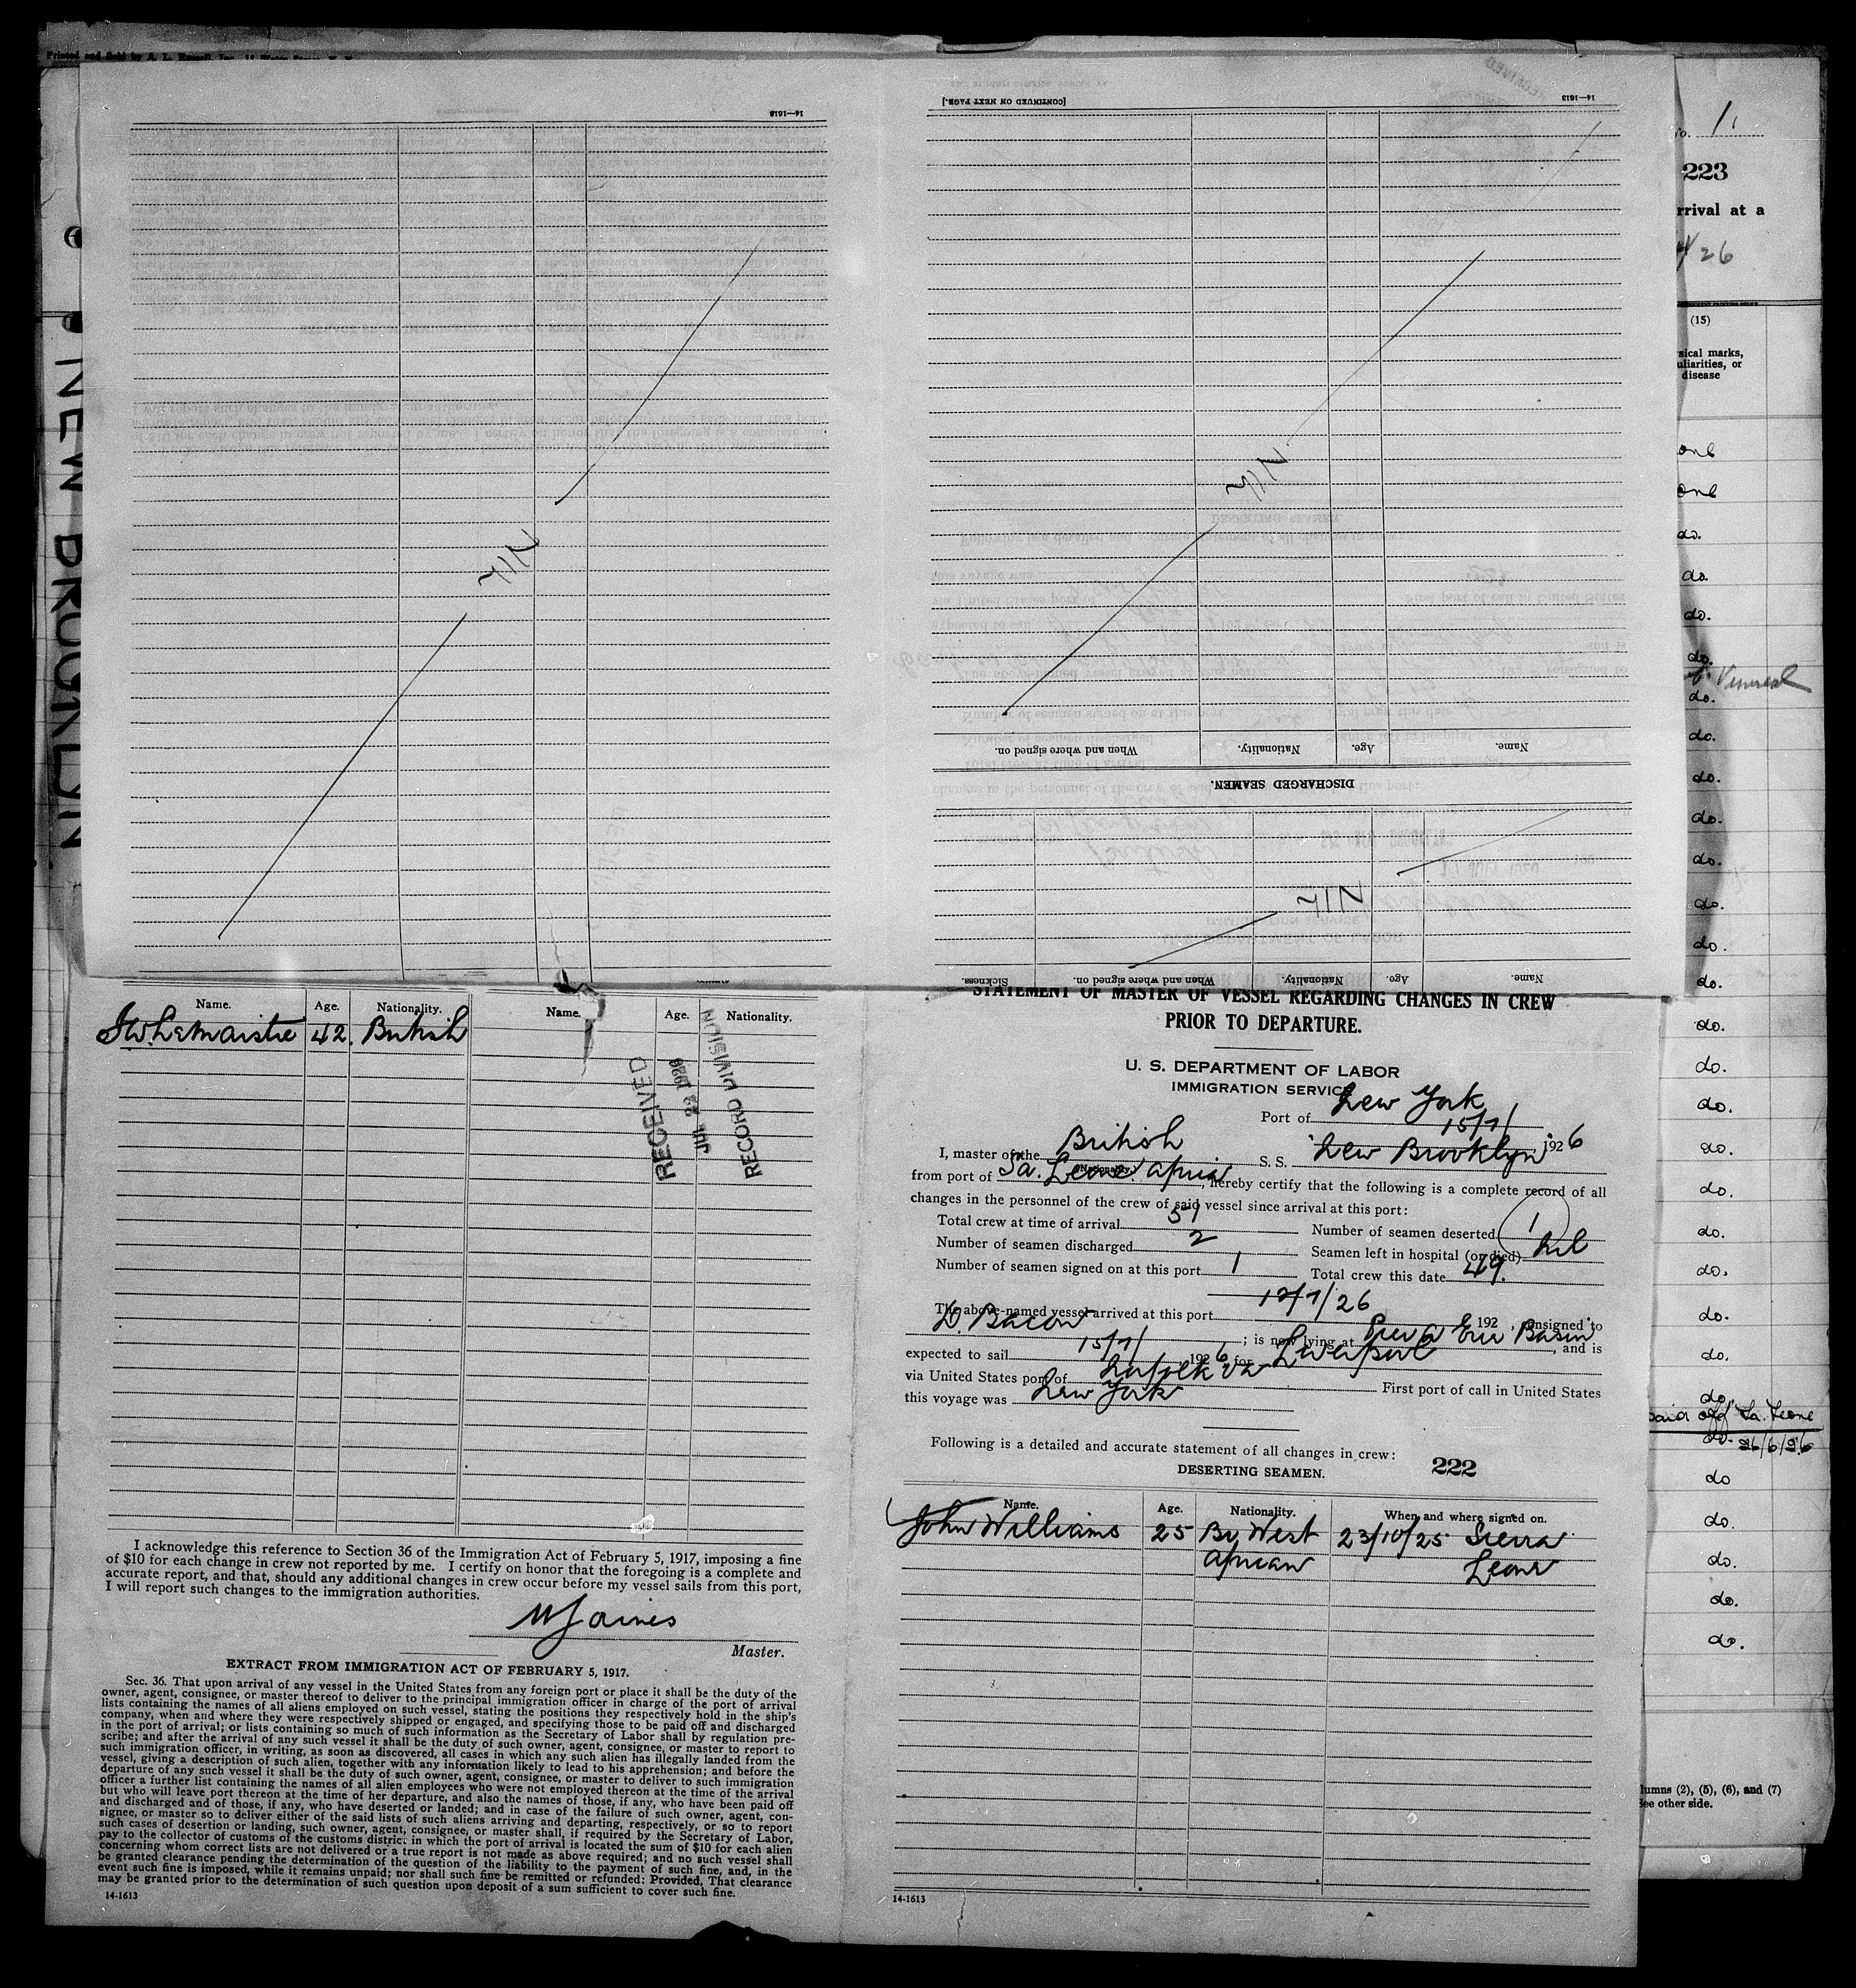 Printed and sold by
NEW BROOKLYN
14—1613
Nil
[CONTINUED ON NEXT PAGE.]
14—1613
Nil
When and where signed on.
Nationality.
Age.
Name.
DISCHARGED SEAMEN.
Nil
Sickness.
When and where signed on.
Nationality.
Age.
Name.
Name. Age. Nationality. Name. Age. Nationality.
J.W. LeMaistre 42. British
RECEIVED
JUL 22 1926
RECORD DIVISION
I acknowledge this reference to Section 36 of the Immigration Act of February 5, 1917, imposing a fine
of $10 for each change in crew not reported by me. I certify on honor that the foregoing is a complete and
accurate report, and that, should any additional changes in crew occur before my vessel sails from this port,
I will report such changes to the immigration authorities.
Master.
EXTRACT FROM IMMIGRATION ACT OF FEBRUARY 5, 1917.
Sec. 36. That upon arrival of any vessel in the United States from any foreign port or place it shall be the duty of the
owner, agent, consignee, or master thereof to deliver to the principal immigration officer in charge of the port of arrival
lists containing the names of all aliens employed on such vessel, stating the positions they respectively hold in the ship's
company, when and where they were respectively shipped or engaged, and specifying those to be paid off and discharged
in the port of arrival; or lists containing so much of such information as the Secretary of Labor shall by regulation pre-
scribe; and after the arrival of any such vessel it shall be the duty of such owner, agent, consignee, or master to report to
such immigration officer, in writing, as soon as discovered, all cases in which any such alien has illegally landed from the
vessel, giving a description of such alien, together with any information likely to lead to his apprehension; and before the
departure of any such vessel it shall be the duty of such owner, agent, consignee, or master to deliver to such immigration
officer a further list containing the names of all alien employees who were not employed thereon at the time of the arrival
but who will leave port thereon at the time of her departure, and also the names of those, if any, who have been paid off
and discharged and of those, if any, who have deserted or landed; and in case of the failure of such owner, agent, con-
signee, or master so to deliver either of the said lists of such aliens arriving and departing, respectively, or so to report
such cases of desertion or landing, such owner, agent, consignee, or master shall, if required by the Secretary of Labor,
pay to the collector of customs of the customs district in which the port of arrival is located the sum of $10 for each alien
concerning whom correct lists are not delivered or a true report is not made as above required; and no such vessel shall
be granted clearance pending the determination of the question of the liability to the payment of such fine, and, in the
event such fine is imposed, while it remains unpaid; nor shall such fine be remitted or refunded: Provided, That clearance
may be granted prior to the determination of such question upon deposit of a sum sufficient to cover such fine.
14-1613
STATEMENT OF MASTER OF VESSEL REGARDING CHANGES IN CREW
PRIOR TO DEPARTURE.
U. S. DEPARTMENT OF LABOR
IMMIGRATION SERVICE
Port of New York
15/7/ 1926
I, master of the British S. S. "New Brooklyn"
(Nationality)
from port of Sa. Leone. Africa, hereby certify that the following is a complete record of all
changes in the personnel of the crew of said vessel since arrival at this port:
Total crew at time of arrival 51 Number of seamen deserted 1
Number of seamen discharged 2 Seamen left in hospital (or died) Nil
Number of seamen signed on at this port 1 Total crew this date 49.
The above-named vessel arrived at this port 12/7/26 192 , consigned to
D. Bacon ; is now lying at Pier 6 Erie Basin, and is
expected to sail 15/7/ 1926 for Liverpool
via United States port of Norfolk Va First port of call in United States
this voyage was New York
Following is a detailed and accurate statement of all changes in crew:
DESERTING SEAMEN. 222
Name. Age. Nationality. When and where signed on.
John Williams 25 Br. West 23/10/25 Sierra
African Leone
14-1613
No. 1.
223
rrival at a
26
(15)
sical marks,
uliarities, or
disease
one
one
do.
do.
do.
do.
Venereal
do.
do.
do.
do.
do.
do.
do.
do.
do.
do.
do.
do.
do.
do.
do.
do.
do.
do.
paid off Sa. Leone
do. 26/6/26
do
do.
do.
do.
do.
lumns (2), (5), (6), and (7)
See other side.